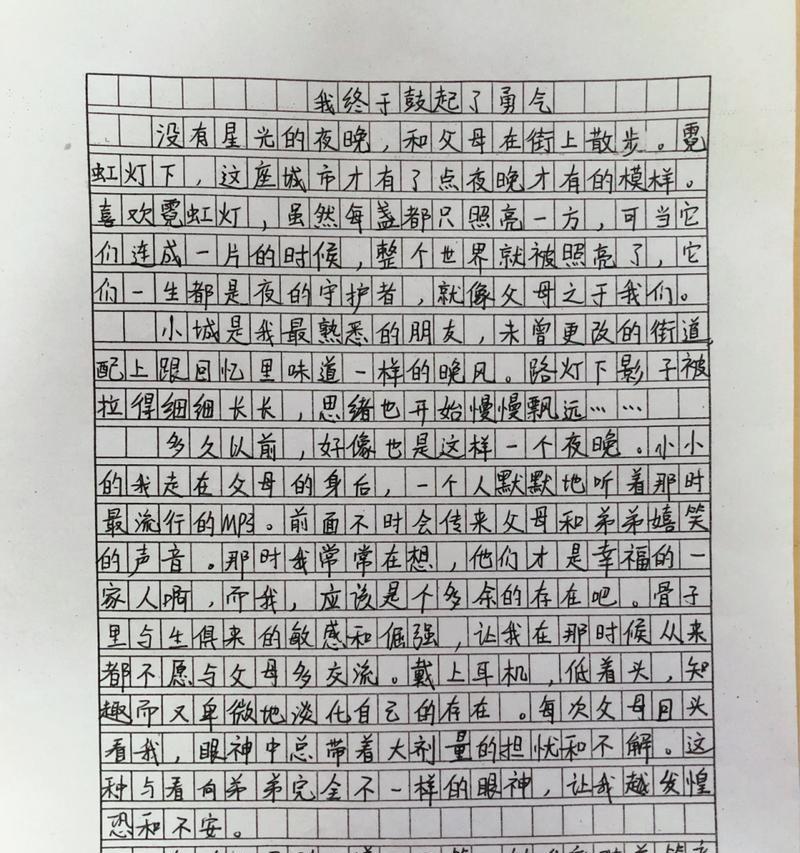 我终于鼓起了勇气
没有星光的夜晚，和父母在街上散步。霓
虹灯下，这座城市才有了点夜晚才有的模样。
喜欢霓虹灯，虽然每盏都只照亮一方，可当它
们连成一片的时候，整个世界就被照亮了，它
们一生都是夜的守护者，就像父母之于我们。
小城是我最熟悉的朋友，未曾更改的街道，
配上跟回忆里味道一样的晚风。路灯下影子被
拉得细细长长，思绪也开始慢慢飘远……
多久以前，好像也是这样一个夜晚。小小
的我走在父母的身后，一个人默默地听着那时
最流行的MP3。前面不时会传来父母和弟弟嬉笑
的声音。那时我常常在想，他们才是幸福的一
家人啊，而我，应该是个多余的存在吧。骨子
里与生俱来的敏感和倔强，让我在那时候从来
都不愿与父母多交流。戴上耳机，低着头，知
趣而又卑微地淡化自己的存在。每次父母回头
看我，眼神中总带着大剂量的担忧和不解。这
种与看向弟弟完全不一样的眼神，让我越发惶
恐和不安。